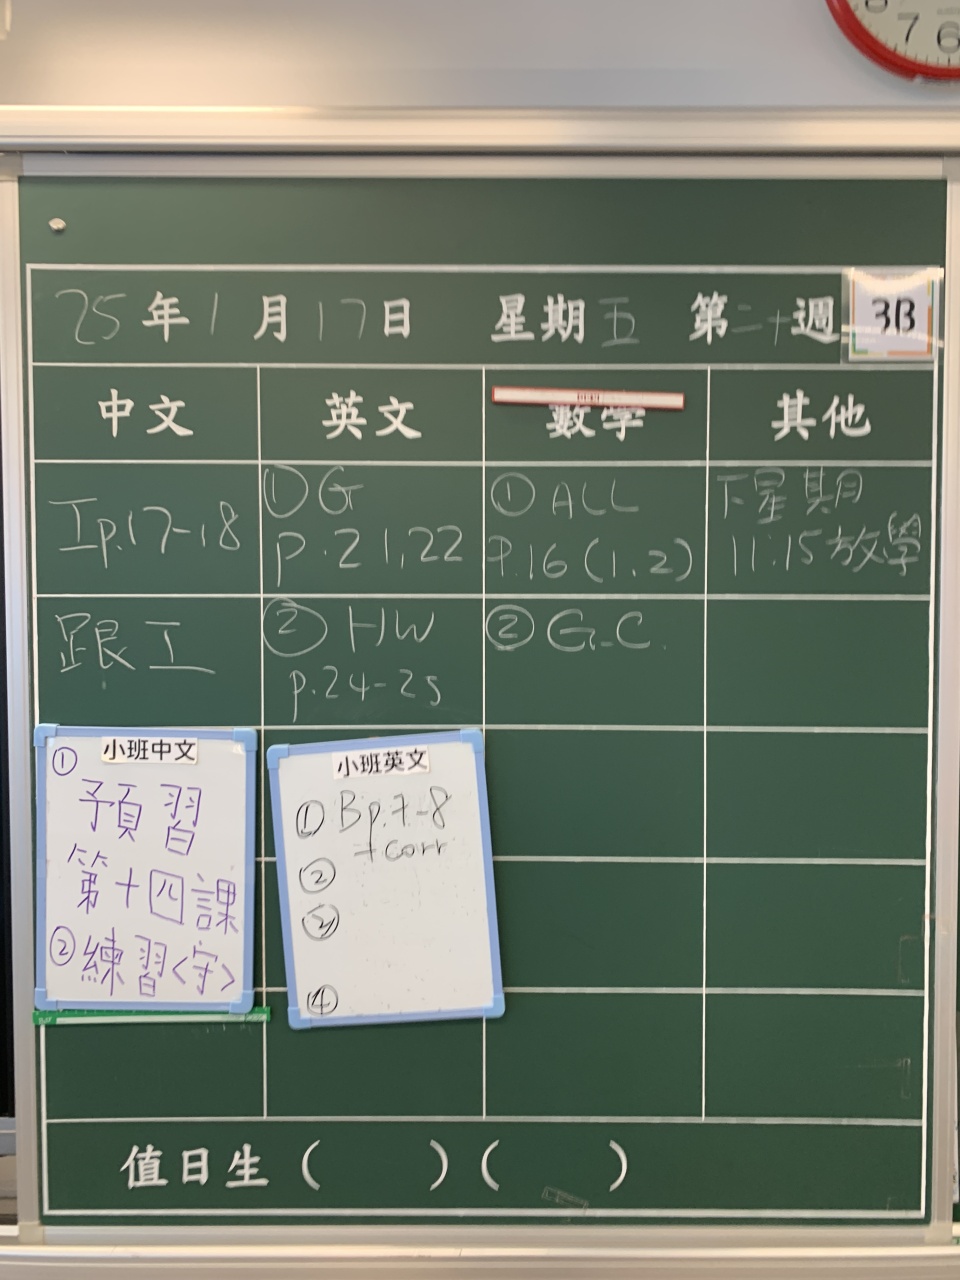 25年1月17日 星期五 第二十週
3B
中文 英文 數學 其他
工p.17-18
① G
p.21,22
① ALL
P.16(1,2)
下星期
11:15放學
跟工
② HW
p.24-25
② G.C.
小班中文
①
預習
第十四課
② 練習<守>
小班英文
① Bp.7-8
+corr
②
③
④
值日生( )( )
7 6